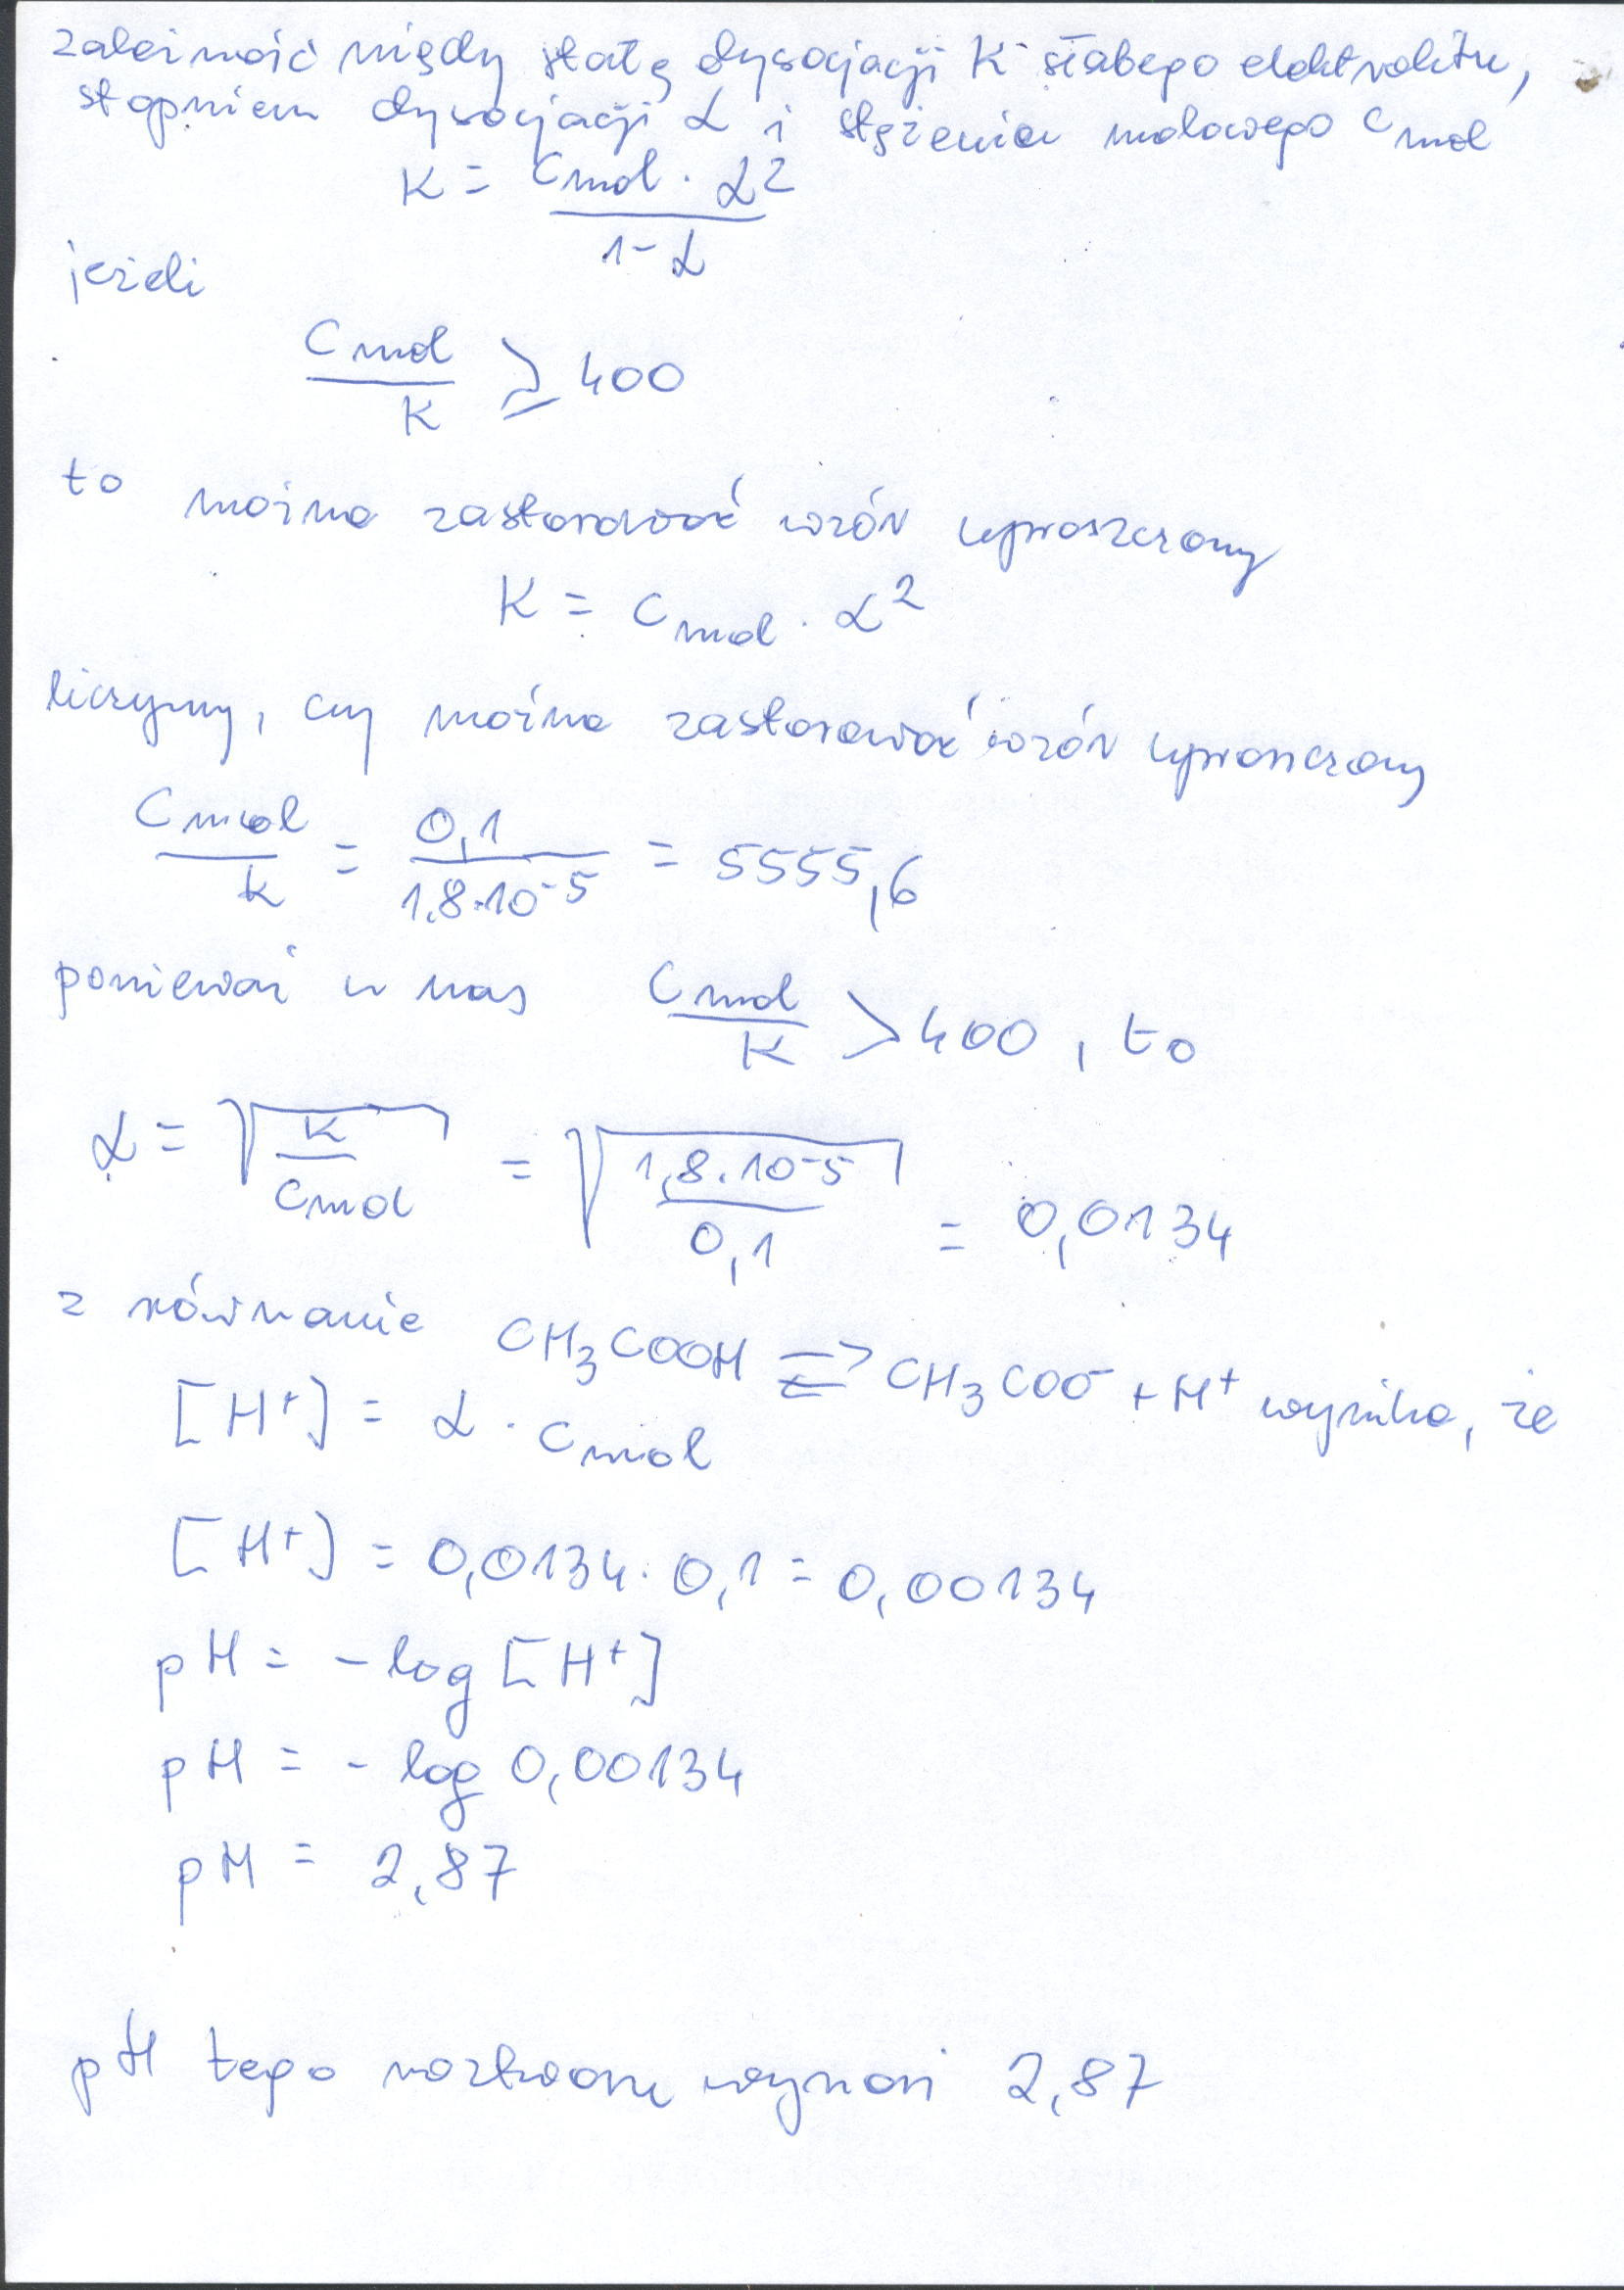 zależność między stałą dysocjacji K słabego elektrolitu,
stopniem dysocjacji α i stężenia molowego Cmol
K = Cmol · α²
1-α
jeżeli
Cmol
K ≥ 400
to można zastosować wzór uproszczony
K = Cmol · α²
liczymy, czy można zastosować wzór uproszczony
Cmol / k = 0,1 / 1,8·10⁻⁵ = 5555,6
ponieważ u nas Cmol / K > 400, to
α = √(K / Cmol) = √(1,8·10⁻⁵ / 0,1) = 0,0134
z równanie CH₃COOH ⇌ CH₃COO⁻ + H⁺ wynika, że
[H⁺] = α · Cmol
[H⁺] = 0,0134 · 0,1 = 0,00134
pH = -log [H⁺]
pH = -log 0,00134
pH = 2,87
pH tego roztworu wynosi 2,87